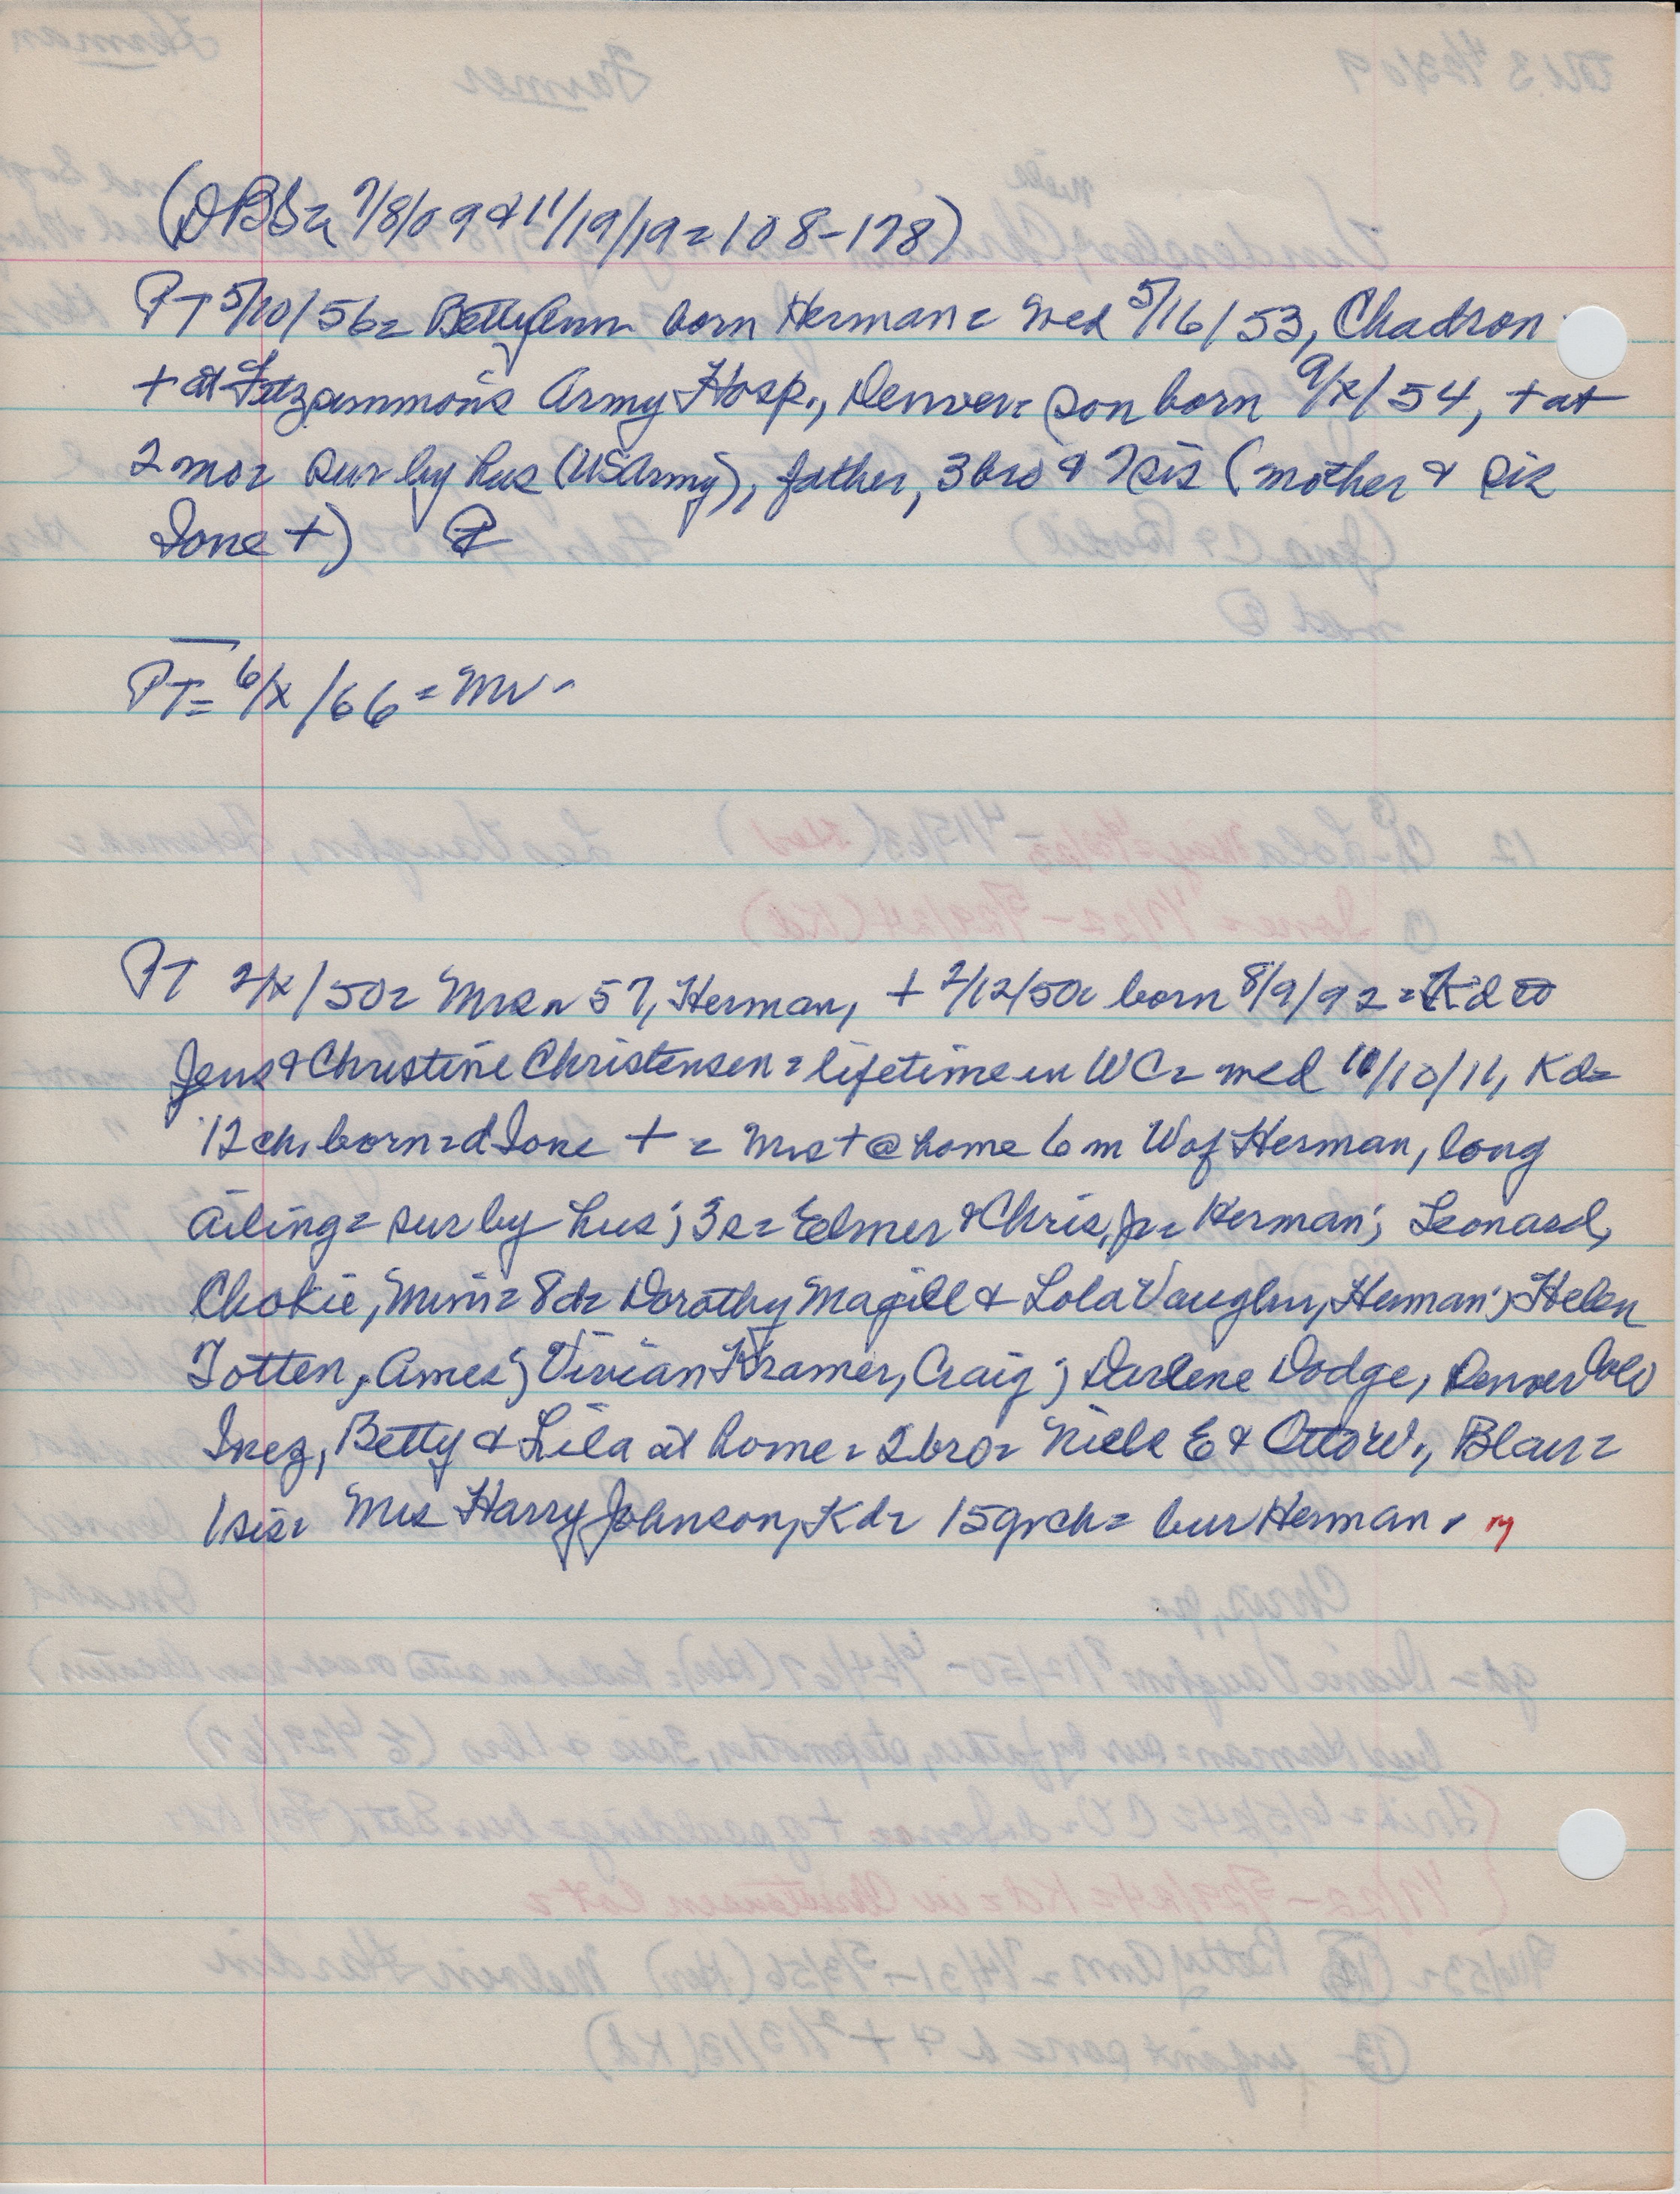 (DBS= 7/8/09 & 11/19/19=108-178)
PT 5/10/56= Betty Ann born Herman= wed 5/16/53, Chadron
+ at Fitzsimmons Army Hosp., Denver= son born 9/x/54, + at
2 mo= sur by hus (US Army), father, 3 bro & 7 sis (mother & sis
Ione +)
PT= 6/x/66= Mr
PT 2/x/50= Mrs 57, Herman, + 2/12/50= born 8/9/92= Kd to
Jens & Christine Christensen= lifetime in WC= wed 10/10/11, Kd=
12 ch born= d Ione + = Mrs + @ home 6 m W of Herman, long
ailing= sur by hus; 3 s= Elmer & Chris, Jr= Herman; Leonard,
Chokie, Minn= 8 d= Dorothy Magill & Lola Vaughn, Herman; Helen
Totten, Ames; Vivian Kramer, Craig; Darlene Dodge, Denver Colo
Inez, Betty & Lila at home= 2 bro= Niels E & Otto W., Blair=
1 sis= Mrs Harry Johnson, Kd= 15 grch= bur Herman.